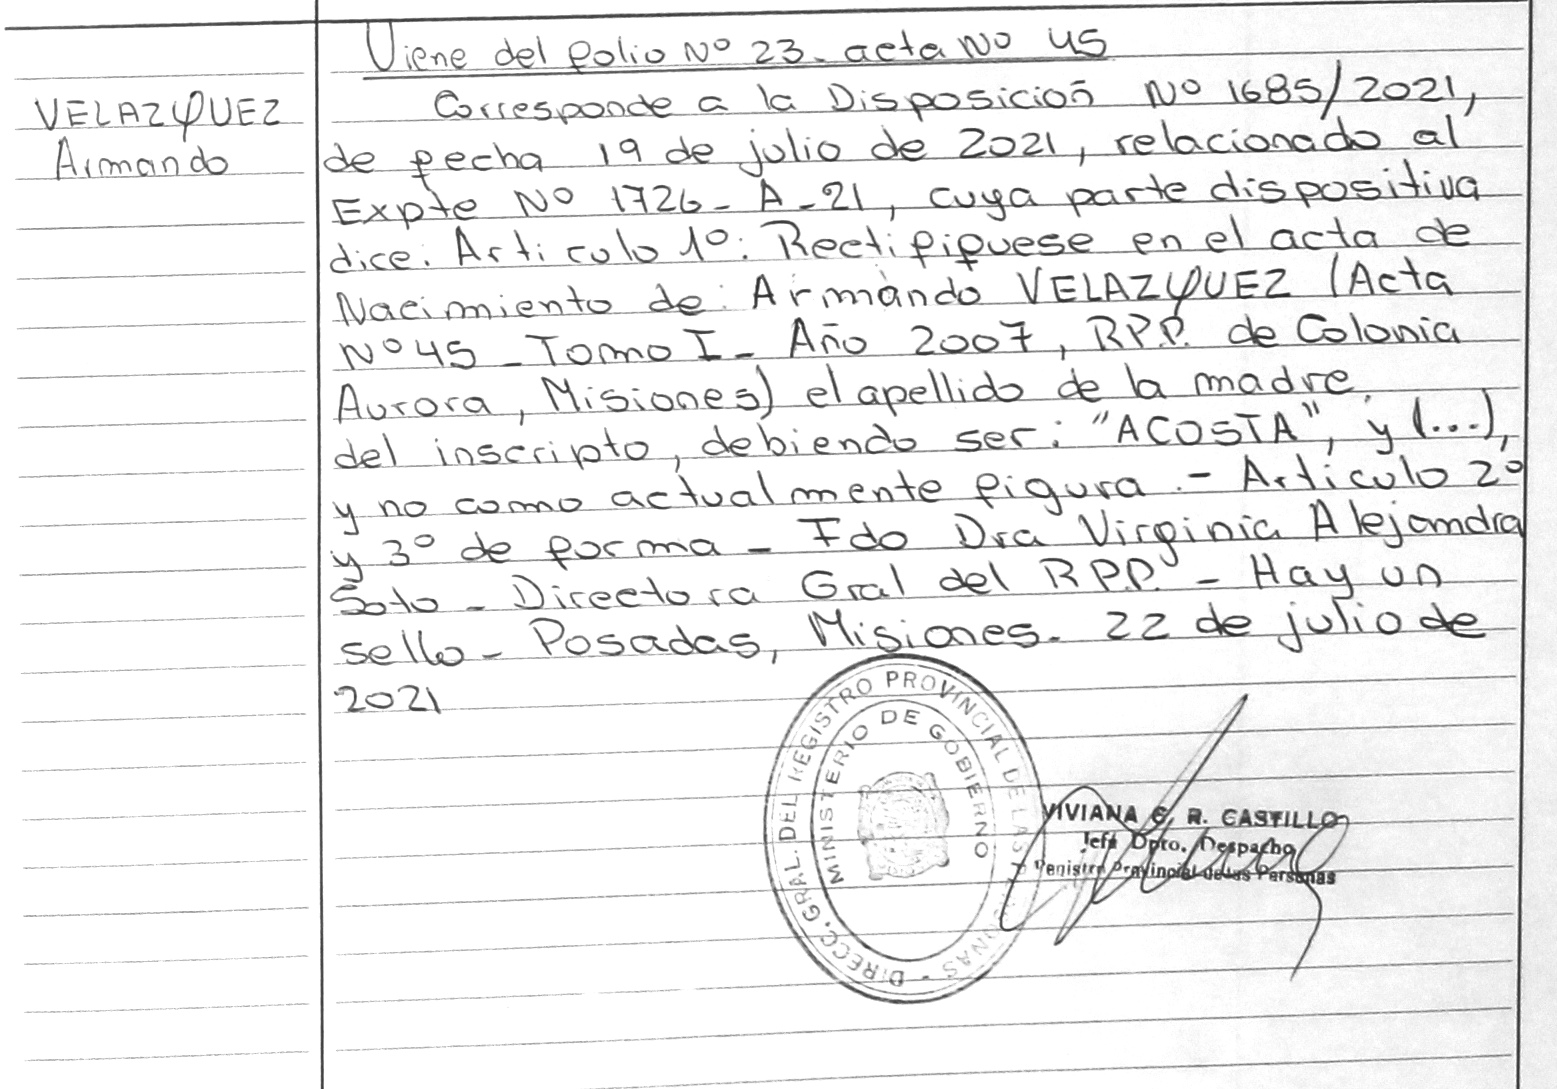 Viene del folio Nº 23. acta Nº 45
VELAZQUEZ
Armando
Corresponde a la Disposición Nº 1685/2021,
de fecha 19 de julio de 2021, relacionado al
Expte Nº 1726-A-21, cuya parte dispositiva
dice: Articulo 1º: Rectifiquese en el acta de
Nacimiento de: Armando VELAZQUEZ (Acta
Nº 45 - Tomo I - Año 2007, R.P.P. de Colonia
Aurora, Misiones) el apellido de la madre
del inscripto, debiendo ser: "ACOSTA", y (...),
y no como actualmente figura.- Articulo 2º
y 3º de forma - Fdo Dra Virginia Alejandra
Soto - Directora Gral del R.P.P. - Hay un
sello - Posadas, Misiones. 22 de julio de
2021
DIRECC. GRAL. DEL REGISTRO PROVINCIAL DE LAS PERSONAS -
MINISTERIO DE GOBIERNO
VIVIANA C. R. CASTILLO
Jefe Dpto. Despacho
Registro Provincial de las Personas